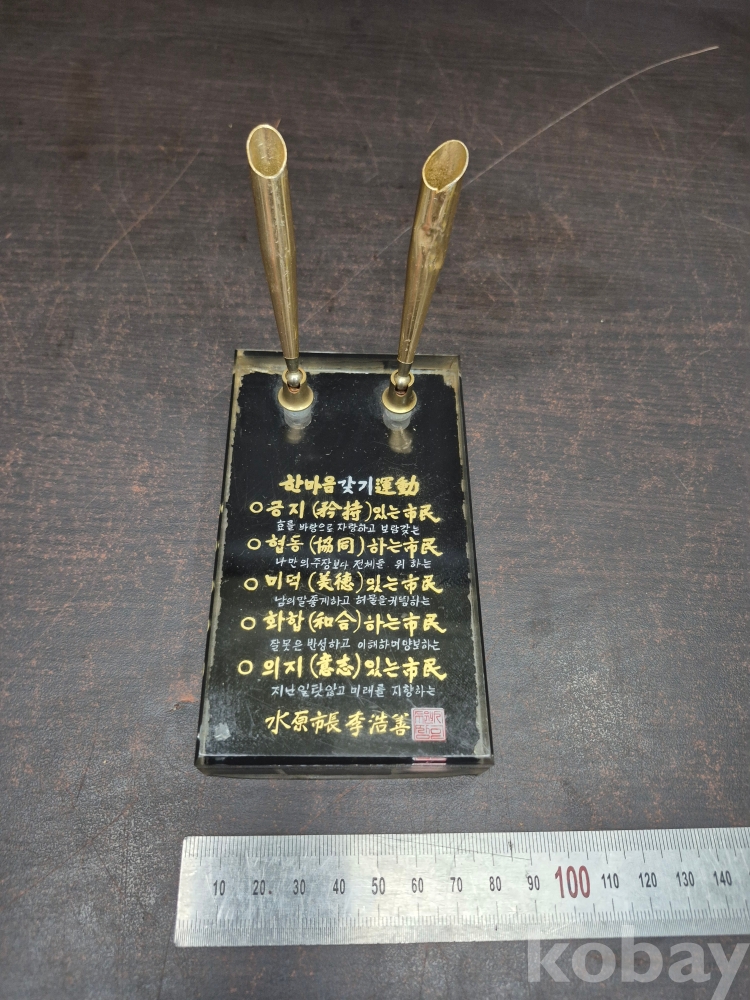 한마음갖기運動
○긍지(矜持)있는市民
효를 바탕으로 자랑하고 보람갖는
○협동(協同)하는市民
나만의주장보다 전체를 위하는
○미덕(美德)있는市民
남의말좋게하고 허물을귀띔하는
○화합(和合)하는市民
잘못은 반성하고 이해하며양보하는
○의지(意志)있는市民
지난일탓않고 미래를 지향하는
水原市長 李浩善
10 20 30 40 50 60 70 80 90 100 110 120 130 140
kobay